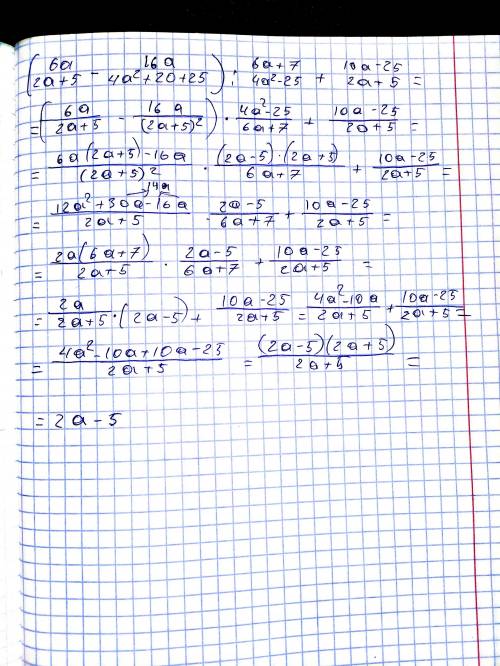 (6a/(2a+5) - 16a/(4a²+20+25)) : (6a+7)/(4a²-25) + (10a-25)/(2a+5) =
= (6a/(2a+5) - 16a/(2a+5)²) · (4a²-25)/(6a+7) + (10a-25)/(2a+5) =
= (6a(2a+5)-16a)/(2a+5)² · ((2a-5)·(2a+5))/(6a+7) + (10a-25)/(2a+5) =
14a
= (12a²+30a-16a)/(2a+5) · (2a-5)/(6a+7) + (10a-25)/(2a+5) =
= 2a(6a+7)/(2a+5) · (2a-5)/(6a+7) + (10a-25)/(2a+5) =
= 2a/(2a+5) · (2a-5) + (10a-25)/(2a+5) = (4a²-10a)/(2a+5) + (10a-25)/(2a+5) =
= (4a²-10a+10a-25)/(2a+5) = (2a-5)(2a+5)/(2a+5) =
= 2a-5